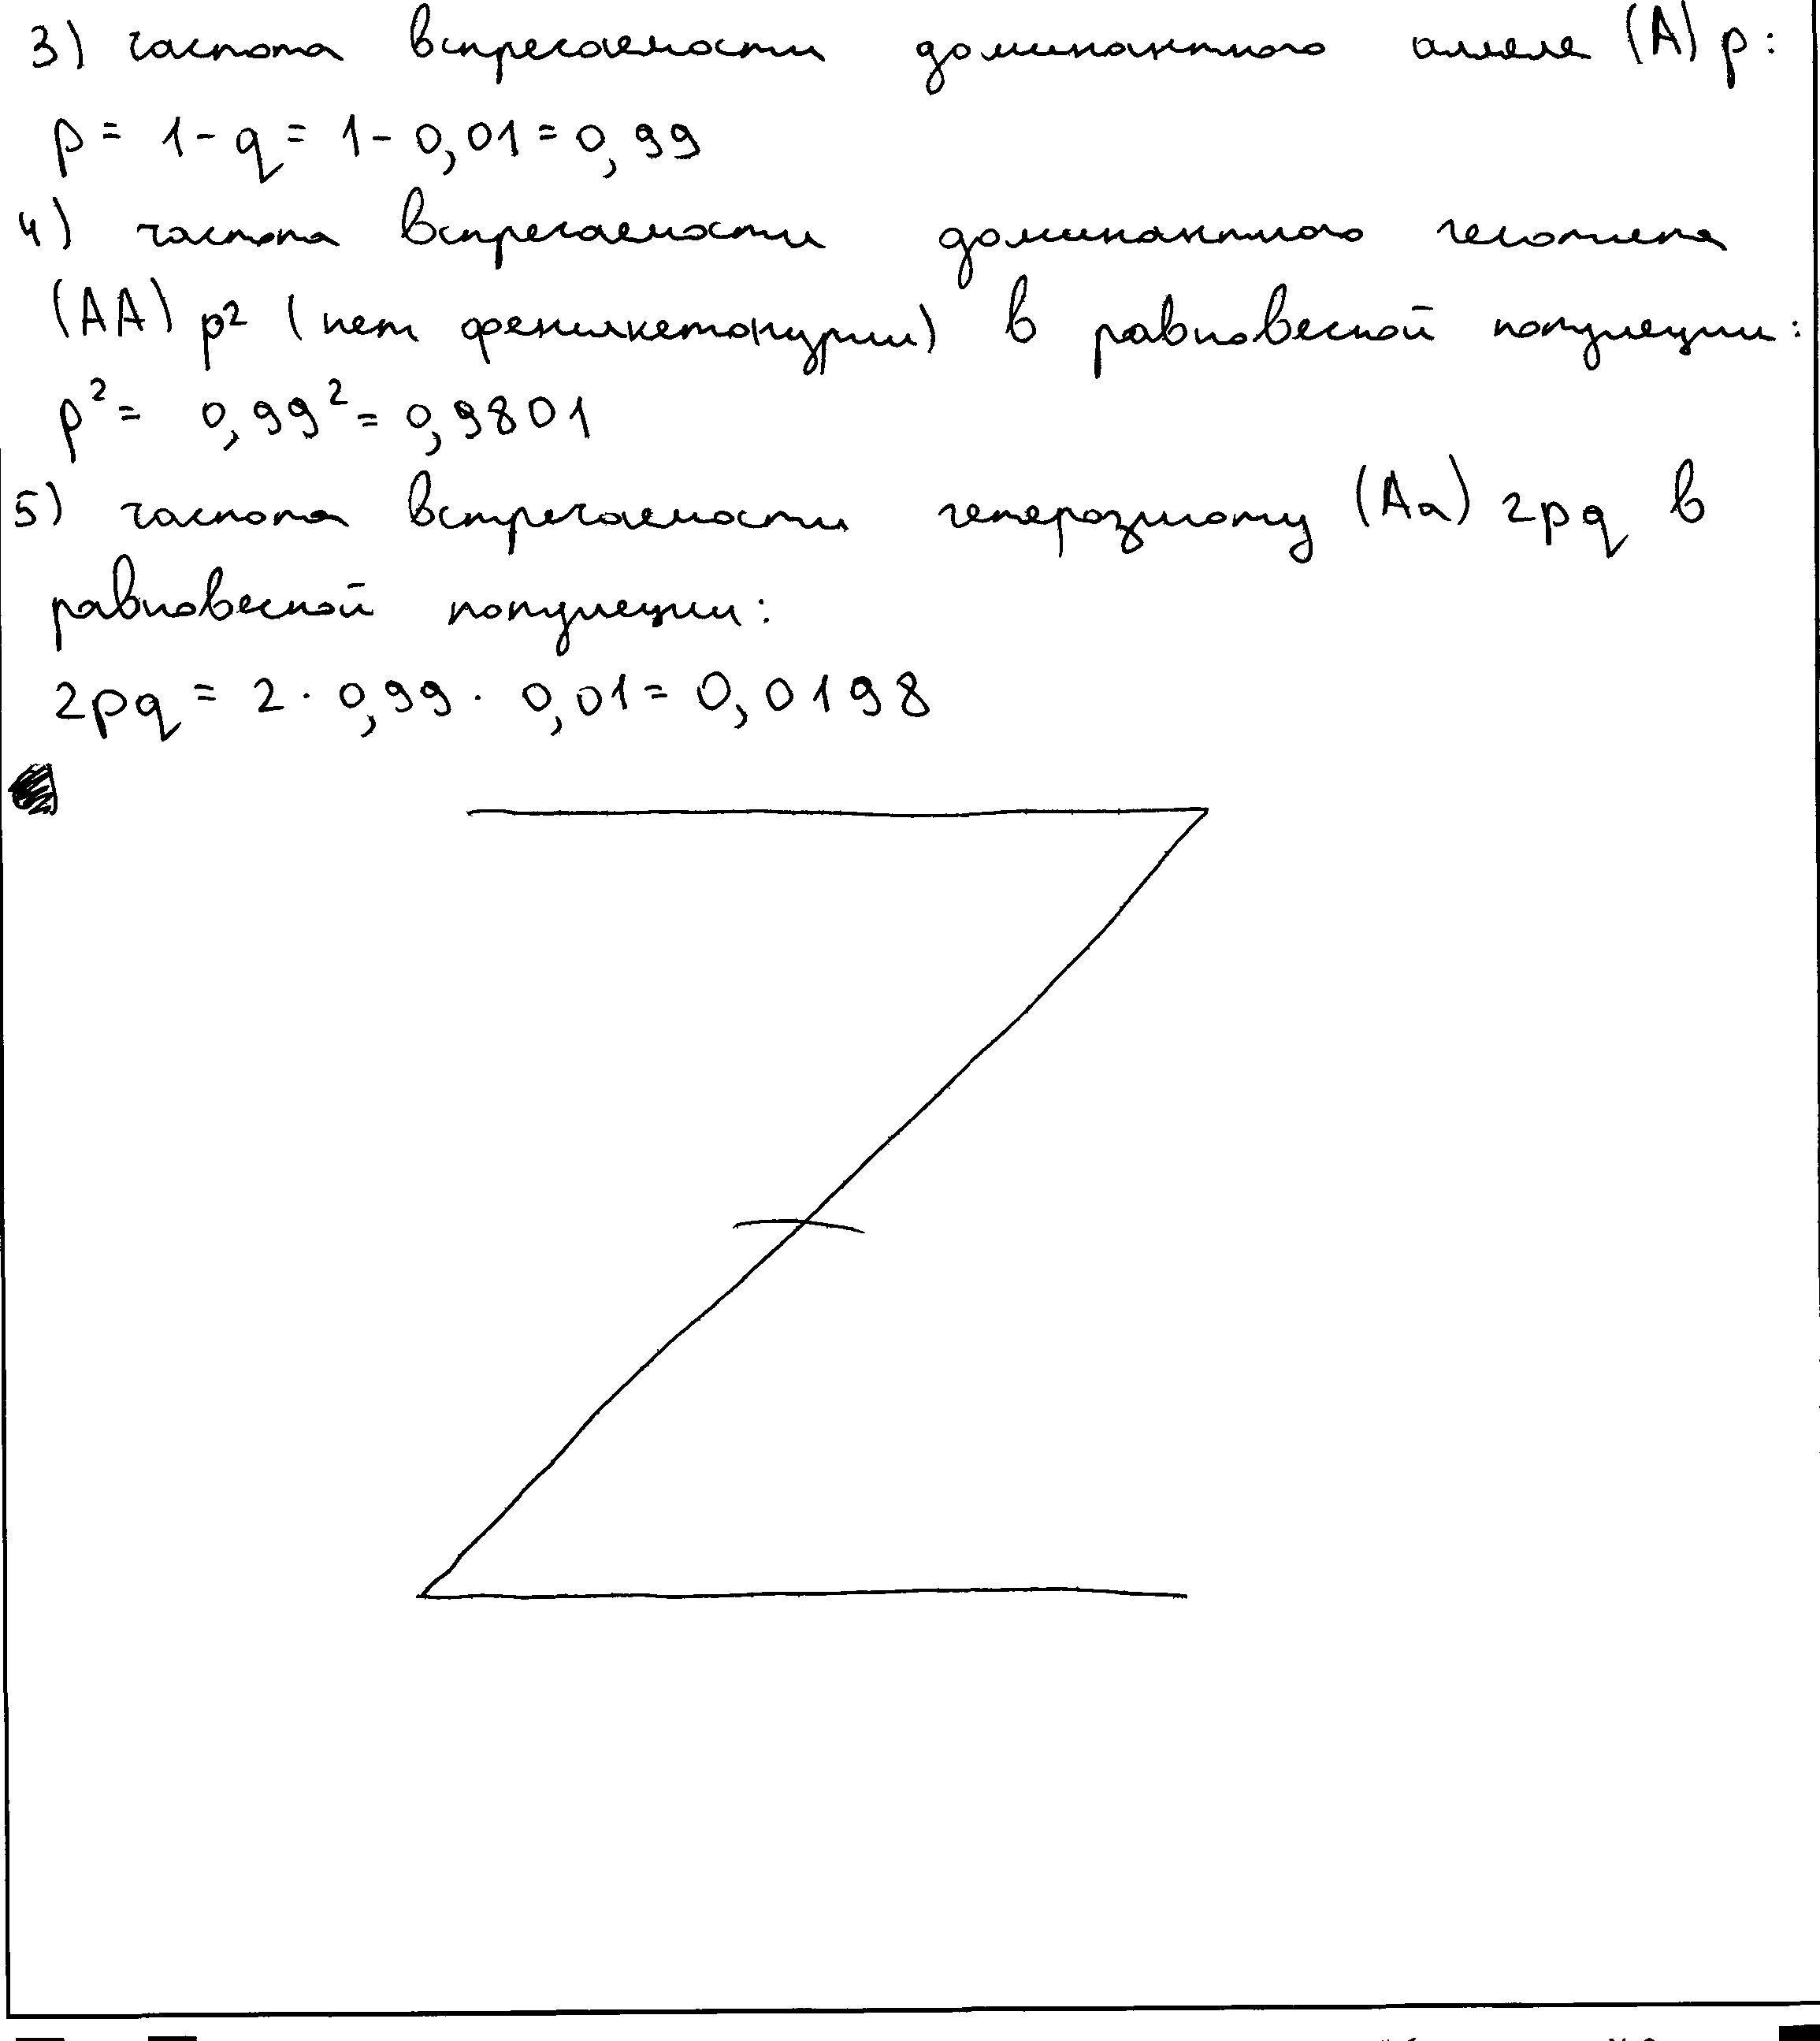 3) частота встречаемости доминантного аллеля (А) p:
p = 1 - q = 1 - 0,01 = 0,99
4) частота встречаемости доминантного генотипа
(АА) p² (нет фенилкетонурии) в равновесной популяции:
p² = 0,99² = 0,9801
5) частота встречаемости гетерозиготы (Аа) 2pq в
равновесной популяции:
2pq = 2 · 0,99 · 0,01 = 0,0198